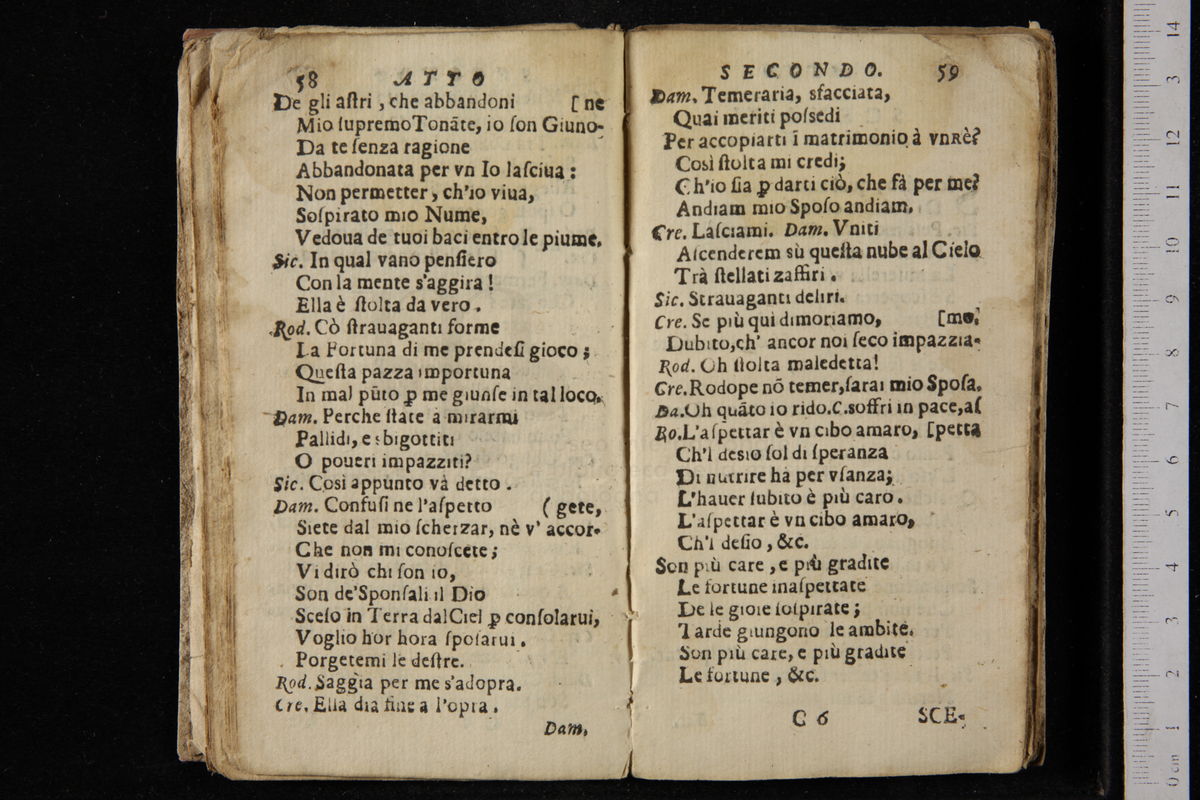 58 ATTO
De gli aſtri , che abbandoni [ne
Mio ſupremo Tonāte, io ſon Giuno-
Da te ſenza ragione
Abbandonata per vn Io laſciua :
Non permetter, ch'io viua,
Soſpirato mio Nume,
Vedoua de tuoi baci entro le piume.
Sic. In qual vano penſiero
Con la mente s'aggira !
Ella è ſtolta da vero .
Rod. Cò ſtrauaganti forme
La Fortuna di me prendeſi gioco ;
Queſta pazza importuna
In mal pūto ꝑ me giunſe in tal loco.
Dam. Perche ſtate à mirarmi
Pallidi, e sbigottiti
O poueri impazziti?
Sic. Così appunto và detto .
Dam. Confuſi ne l'aſpetto ( gete,
Siete dal mio ſcherzar, nè v' accor-
Che non mi conoſcete ;
Vi dirò chi ſon io,
Son de'Sponſali il Dio
Sceſo in Terra dal Ciel ꝑ conſolarui,
Voglio hor hora ſpoſarui .
Porgetemi le deſtre.
Rod. Saggia per me s'adopra.
Cre. Ella dia fine a l'opra .
Dam.
SECONDO. 59
Dam. Temeraria, sfacciata,
Quai meriti poſsedi
Per accopiarti ī matrimonio à vn Rè?
Così ſtolta mi credi;
Ch'io ſia ꝑ darti ciò, che fà per me?
Andiam mio Spoſo andiam.
Cre. Laſciami. Dam. Vniti
Aſcenderem sù queſta nube al Cielo
Trà ſtellati zaffiri .
Sic. Strauaganti deliri.
Cre. Se più qui dimoriamo, [mo.
Dubito, ch' ancor noi ſeco impazzia-
Rod. Oh ſtolta maledetta!
Cre. Rodope nō temer, ſarai mio Spoſa.
Da. Oh quāto io rido. C. soffri in pace, aſ
Ro. L'aſpettar è vn cibo amaro, [petta
Ch'l deſio ſol di ſperanza
Di nutrire hà per vſanza;
L'hauer ſubito è più caro .
L'aſpettar è vn cibo amaro,
Ch'l deſio , &c.
Son più care , e più gradite
Le fortune inaſpettate
De le gioie ſoſpirate ;
Tarde giungono le ambite.
Son più care, e più gradite
Le fortune , &c.
C 6 SCE-
0 cm 1 2 3 4 5 6 7 8 9 10 11 12 13 14